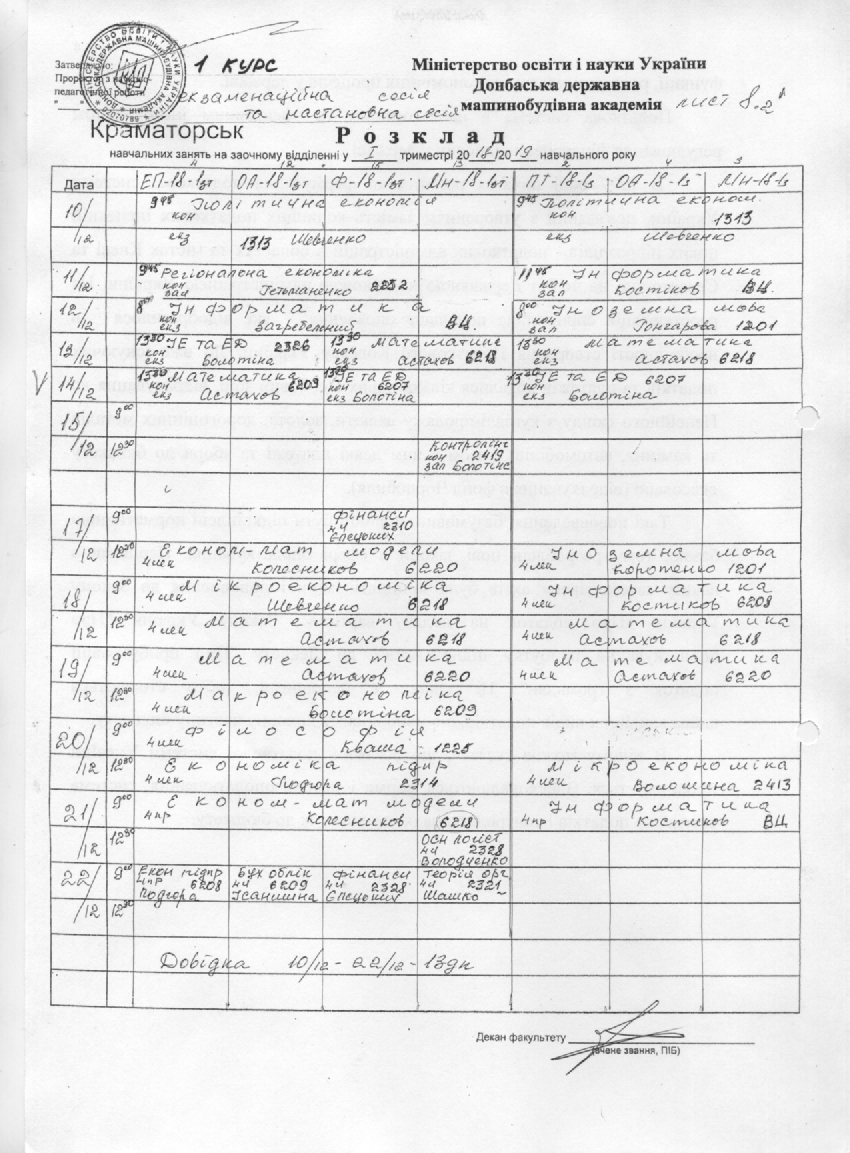 Затверджено:
Проректор з науково-
педагогічної роботи
1 КУРС
екзаменаційна сесія
та настановна сесія
Міністерство освіти і науки України
Донбаська державна
машинобудівна академія
лист 8.2
Краматорськ
Розклад
навчальних занять на заочному відділенні у I триместрі 2018/2019 навчального року
4 12 15 13 2 4 3
Дата ЕП-18-1зт ОА-18-1зт Ф-18-1зт МН-18-1зт ПТ-18-1з ОА-18-1з МН-18-1з
10/12 9⁴⁵ Політична економія 9⁴⁵ Політична економ.
кон кон 1313
екз 1313 Шевченко екз Шевченко
11/12 9⁴⁵ Регіональна економіка 11⁴⁵ Інформатика
кон зал Гетьманенко 2232 кон зал Костіков ВЦ.
12/12 8⁰⁰ Інформатика 8⁰⁰ Іноземна мова
кон екз Загребельний ВЦ. кон зал Гончарова 1201
13/12 13³⁰ ІЕ та ЕД 2326 13³⁰ Математика 13³⁰ Математика
кон екз Болотіна кон екз Астахов 6218 кон екз Астахов 6218
V 14/12 13³⁰ Математика 13³⁰ ІЕ та ЕД 13³⁰ ІЕ та ЕД 6207
кон 6209 кон 6207 кон
екз Астахов екз Болотіна екз Болотіна
15/12 9⁰⁰
12³⁰ Контролінг
кон 2419
зал Болотіна
17/12 9⁰⁰ Фінанси
4ч 2310
Єлецьких
12³⁰ Економ-мат моделі Іноземна мова
4 лек Колесников 6220 4 лек Коротенко 1201
18/12 9⁰⁰ Мікроекономіка Інформатика
4 лек Шевченко 6218 4 лек Костіков 6208
12³⁰ Математика Математика
4 лек Астахов 6218 4 лек Астахов 6218
19/12 9⁰⁰ Математика Математика
4 лек Астахов 6220 4 лек Астахов 6220
12³⁰ Макроекономіка
4 лек Болотіна 6209
20/12 9⁰⁰ Філософія
4 лек Кваша 1225
12³⁰ Економіка підпр Мікроекономіка
4 лек Подгора 2314 4 лек Волошина 2413
21/12 9⁰⁰ Економ-мат моделі Інформатика
4пр Колесников (6218) 4пр Костиков ВЦ
12³⁰ Осн логіст
4ч 2328
Володченко
22/12 9⁰⁰ Екон підпр Бух облік Фінанси Теорія орг
4пр 6208 4ч 6209 4ч 2328 4ч 2321
Подгора Ісаншина Єлецьких Шашко
12³⁰
Довідка 10/12 - 22/12 - 13дн
Декан факультету
(вчене звання, ПІБ)